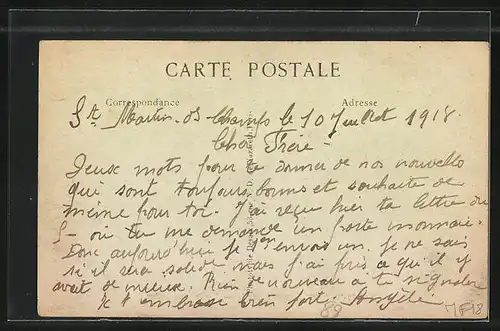 CARTE POSTALE
Correspondance
Adresse
St Martin des Champs le 10 Juillet 1918.
Cher Frère -
Deux mots pour te donner de nos nouvelles
qui sont toujours bonnes et souhaite de
même pour toi. J'ai reçu hier ta lettre du
5 - où tu me demande un porte monnaie.
Donc aujourd'hui je t'en envois un. Je ne sais
si il sera solide mais j'ai pris ce qu'il y
avait de mieux. Rien de nouveau à te signaler
Je t'embrasse bien fort. Angèle
89